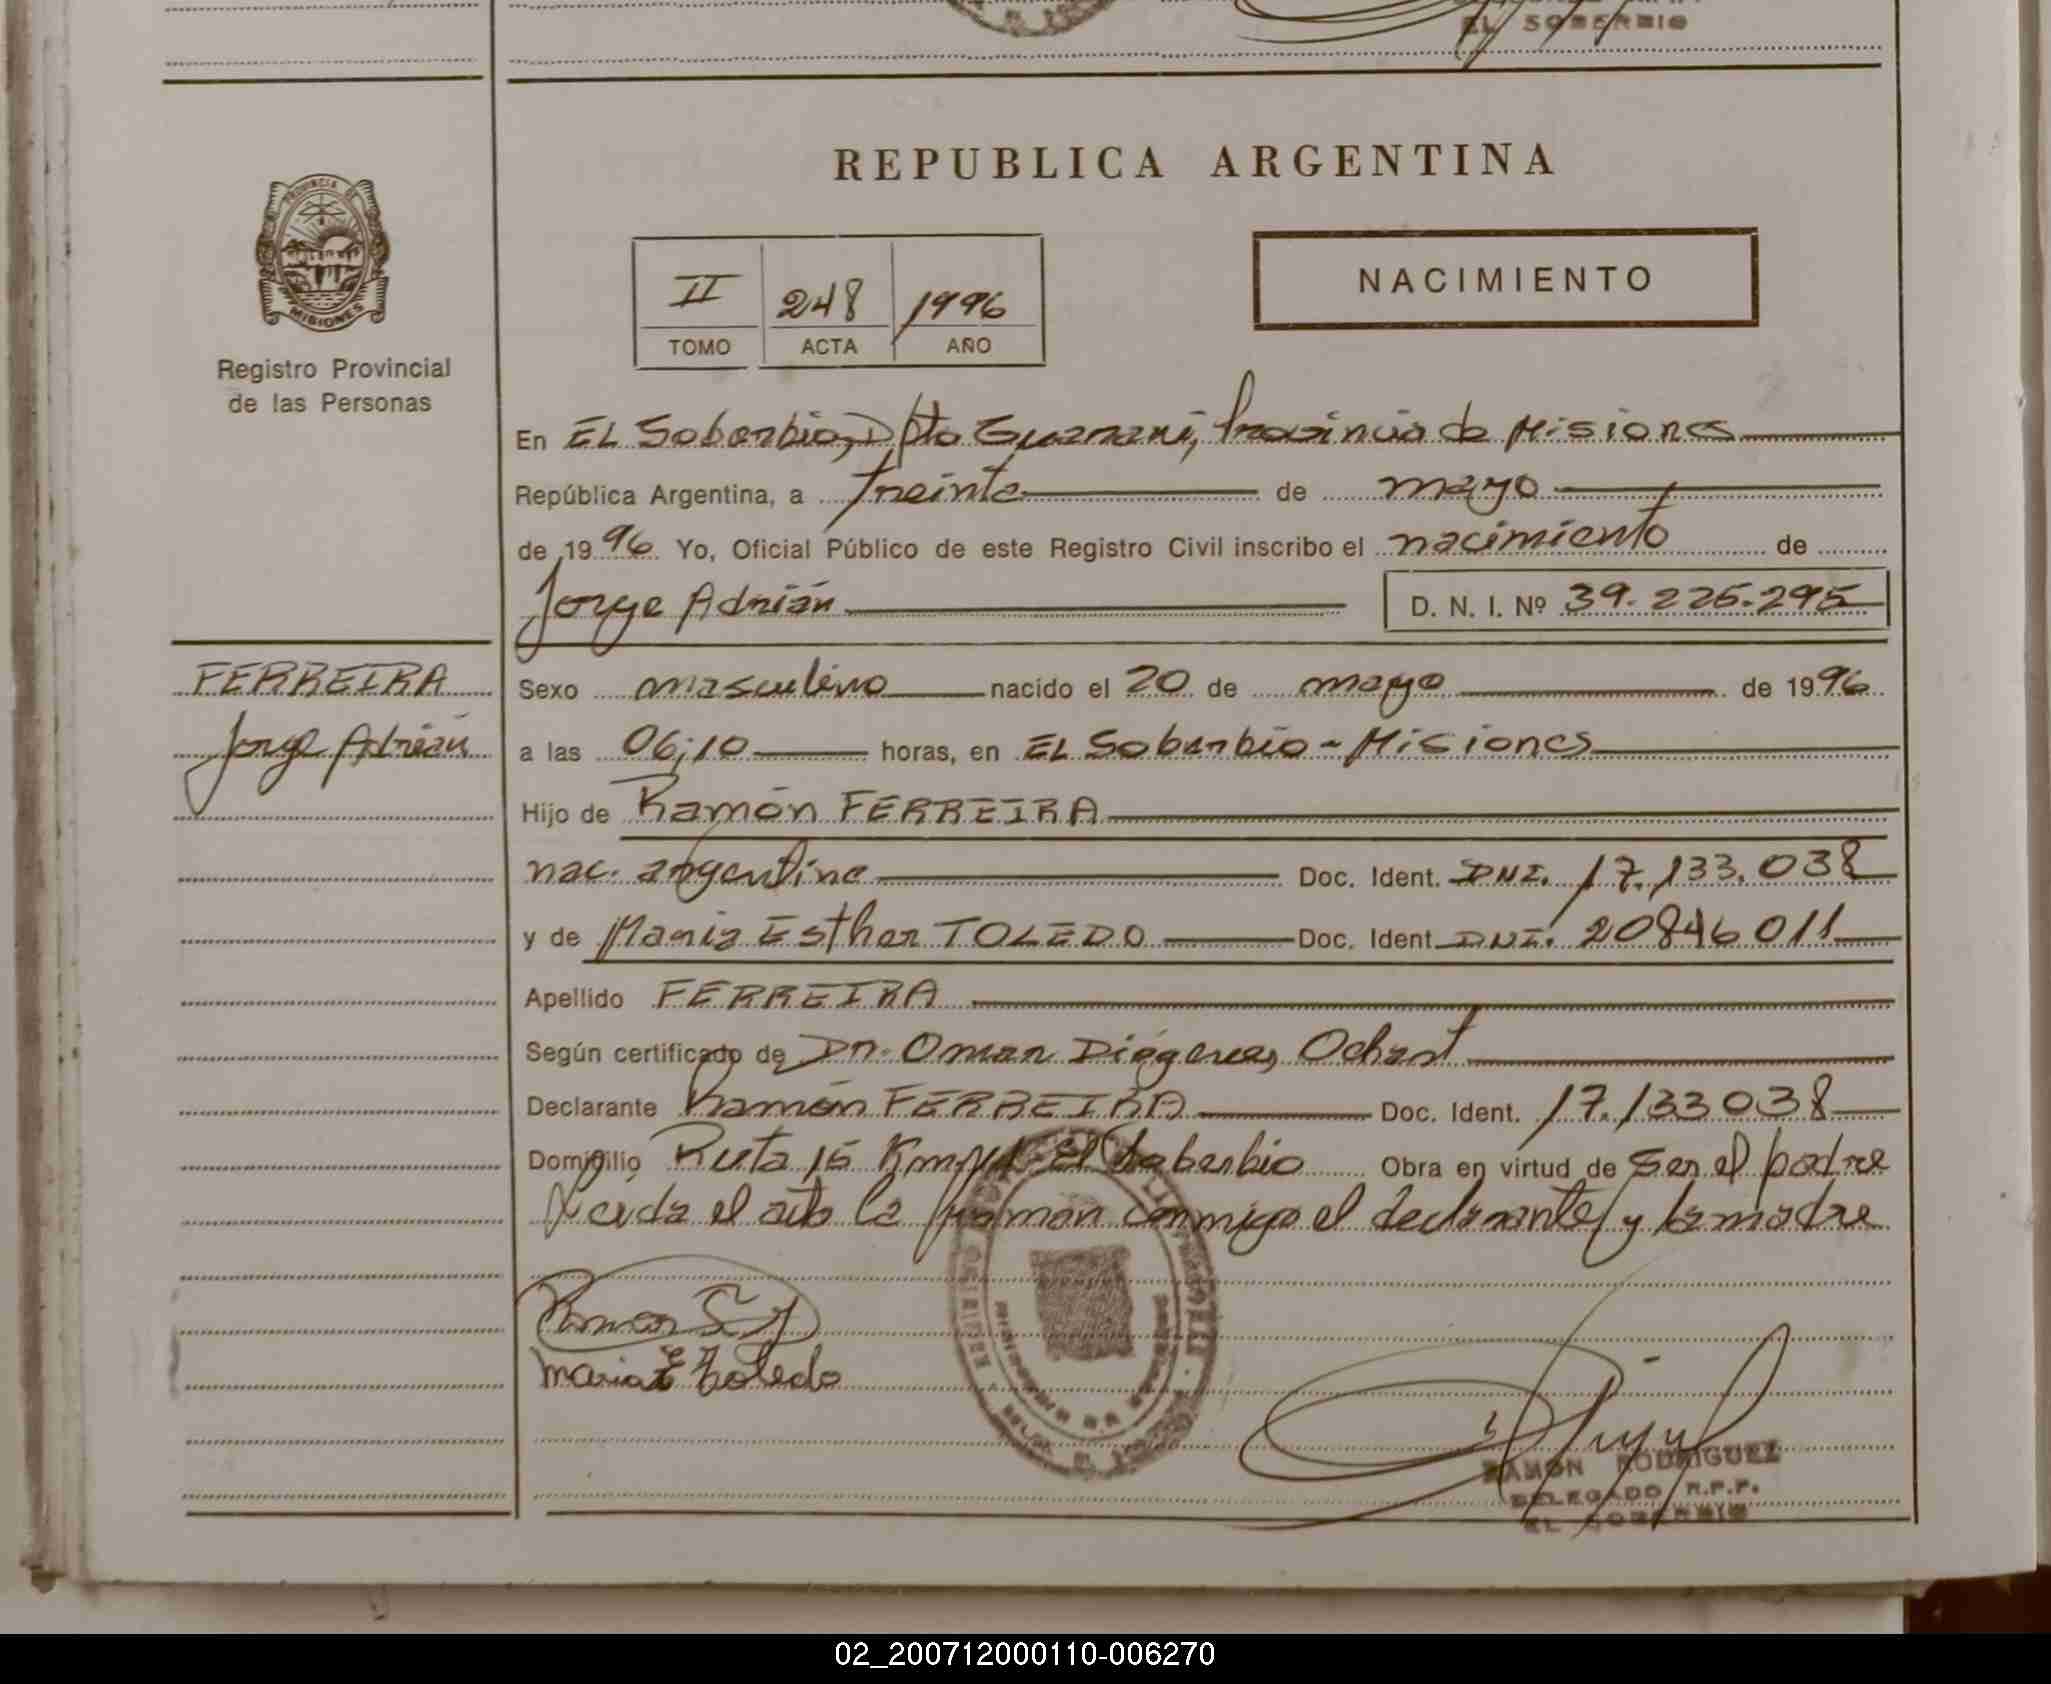 EL SOBERBIO
REPUBLICA ARGENTINA
PROVINCIA DE
MISIONES
Registro Provincial
de las Personas
II 248 1996
TOMO ACTA AÑO
NACIMIENTO
En EL Soberbio, Dpto Guaraní, Provincia de Misiones
República Argentina, a treinta de mayo
de 1996 Yo, Oficial Público de este Registro Civil inscribo el nacimiento de
Jorge Adrián D. N. I. Nº 39.226.295
FERREIRA
Jorge Adrián
Sexo masculino nacido el 20 de mayo de 1996
a las 06;10 horas, en EL Soberbio - Misiones
Hijo de Ramón FERREIRA
nac. argentina Doc. Ident. DNI. 17.133.038
y de María Esther TOLEDO Doc. Ident. DNI. 20846011
Apellido FERREIRA
Según certificado de Dr. Omar Diógenes Ochart
Declarante Ramón FERREIRA Doc. Ident. 17.133038
Domicilio Ruta 15 El Soberbio Obra en virtud de ser el padre
Leida el acta la firman conmigo el declarante y la madre
Ramon
maria E toledo
RAMON RODRIGUEZ
DELEGADO R.P.P.
EL SOBERBIO
02_200712000110-006270